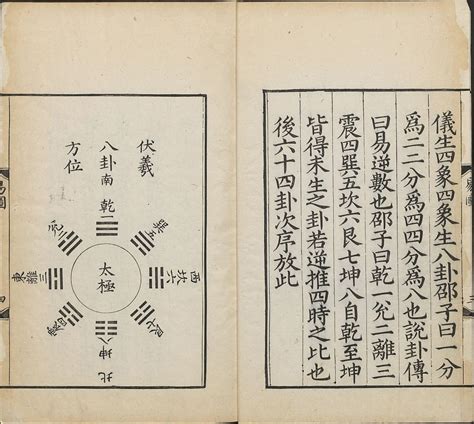 儀生四象四象生八卦邵子曰一分
爲二二分爲四四分爲八也說卦傳
曰易逆數也邵子曰乾一兊二離三
震四巽五坎六艮七坤八自乾至坤
皆得未生之卦若逆推四時之比也
後六十四卦次序放此
伏羲
八卦
方位
南
乾一
巽五
西
坎六
艮七
坤八
北
震四
離三
東
兊二
太極
易圖
四